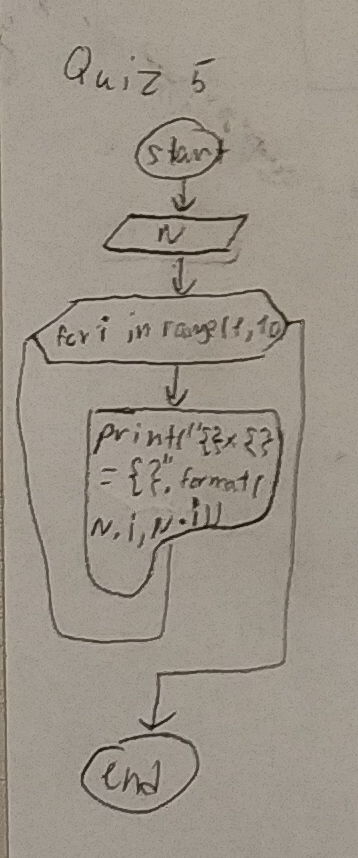 Quiz 5
start
N
for i in range(1,10)
print("{}x{}
={}".format(
N.i,N.i))
end